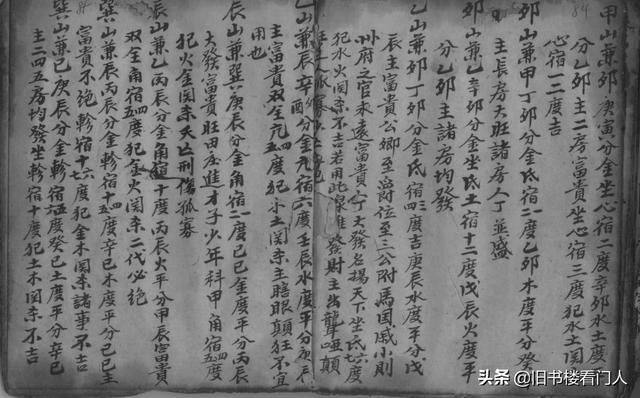 甲山兼卯庚寅分金坐心宿二度辛卯水土度
分乙卯主二房富貴坐心宿三度犯水土関
心宿一二度吉
卯山兼甲丁卯分金氐宿一度乙卯木度平分癸
主長房大旺諸房人丁並盛
卯山兼乙辛卯分金坐氐土宿十二度戊辰火度平
分乙卯主諸房均發
乙山兼卯丁卯分金氐宿四三度吉庚辰水度平分戊
辰主富貴公卿至尚位至三公附馬国戚小則
州府之官永遠富貴人丁大發名揚天下坐氐六七度
犯水火関杀不吉若用此雖發財主出聾啞顛
乙山兼辰辛分金亢宿六度壬辰水度平分庚辰
主富貴双全亢五四度犯水土関杀主瞎眼顛狂不宜
用也
辰山兼巽庚辰分金角宿二度己巳金度平分丙辰
大發富貴旺田庄進才子少年科甲角宿五四度
犯火金関杀夭亡刑傷孤寡
辰山兼乙丙辰分金角宿十度丙辰火平分甲辰富貴
双全角宿五四度犯金火関杀二代必絶
巽山兼辰丙辰分金軫宿十五四度辛巳木度平分己巳主
富貴不绝軫宿十六七度犯金木関杀諸事不吉
巽山兼巳庚辰分金軫宿五六度癸巳土度平分辛巳
主二四五房均發坐軫宿十度犯土木関杀不吉
84
头条 @旧书楼看门人